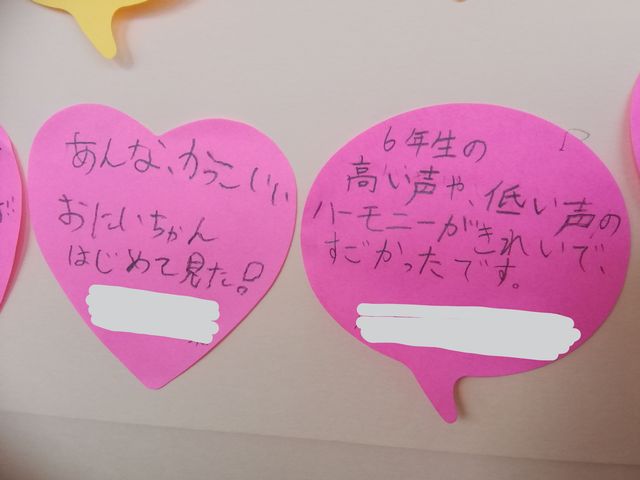 あんな、かっこいい
おにいちゃん
はじめて見た。!
6年生の
高い声や、低い声の
ハーモニーがきれいで、
すごかったです。